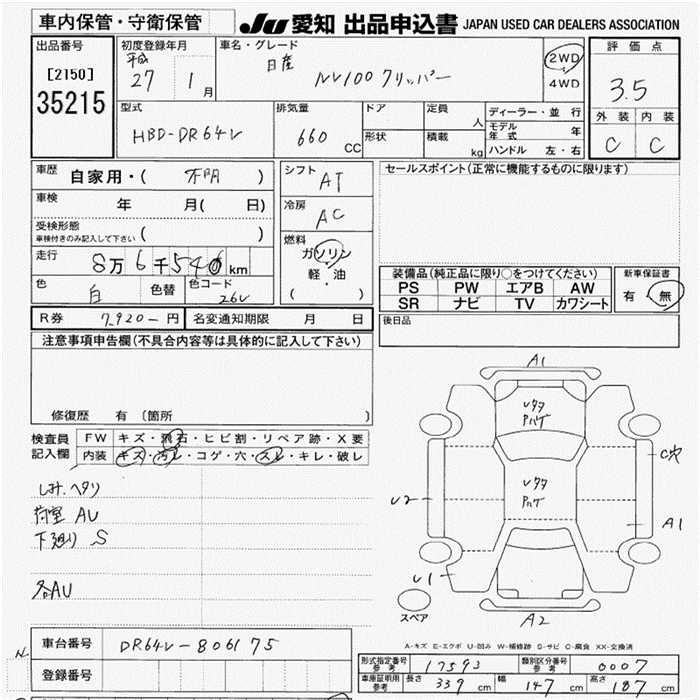 車内保管・守衛保管
JU 愛知 出品申込書 JAPAN USED CAR DEALERS ASSOCIATION
出品番号
[2150]
35215
初度登録年月
平成 27 1 月
車名・グレード
日産 NV100クリッパー
2WD
4WD
評価点
3.5
外装 内装
C C
型式
HBD-DR64V
排気量
660 CC
ドア
形状
定員 人
積載 kg
ディーラー・並行
モデル年式 年
ハンドル 左・右
車歴
自家用・( 不明 )
車検 年 月( 日)
受検形態
車検付きのみ記入して下さい ( )
走行
8万6千546km
色 白 色替 色コード 26V
シフト AT
冷房 AC
燃料
ガソリン
軽・油
( )
セールスポイント(正常に機能するものに限ります)
装備品(純正品に限り○をつけてください)
PS PW エアB AW
SR ナビ TV カワシート
新車保証書
有・無
R券 7,920-円 名変通知期限 月 日
後日品
注意事項申告欄(不具合内容等は具体的に記入して下さい)
修復歴 有 〔箇所 〕
検査員記入欄
FW キズ・飛石・ヒビ割・リペア跡・X要
内装 キズ・汚レ・コゲ・穴・スレ・キレ・破レ
しみ.ヘタリ
荷室 AU
下廻り S
各AU
A1
Uタタ
Pハゲ
C穴
Uタタ
Pハゲ
U2
A1
U1
スペア
A2
A-キズ E-エクボ U-凹み W-補修跡 S-サビ C-腐食 XX-交換済
車台番号 DR64V-806175
登録番号
形式指定番号 参考 17593 類別区分番号 参考 0007
車庫証明用 参考 長さ 339 cm 幅 147 cm 高さ 187 cm